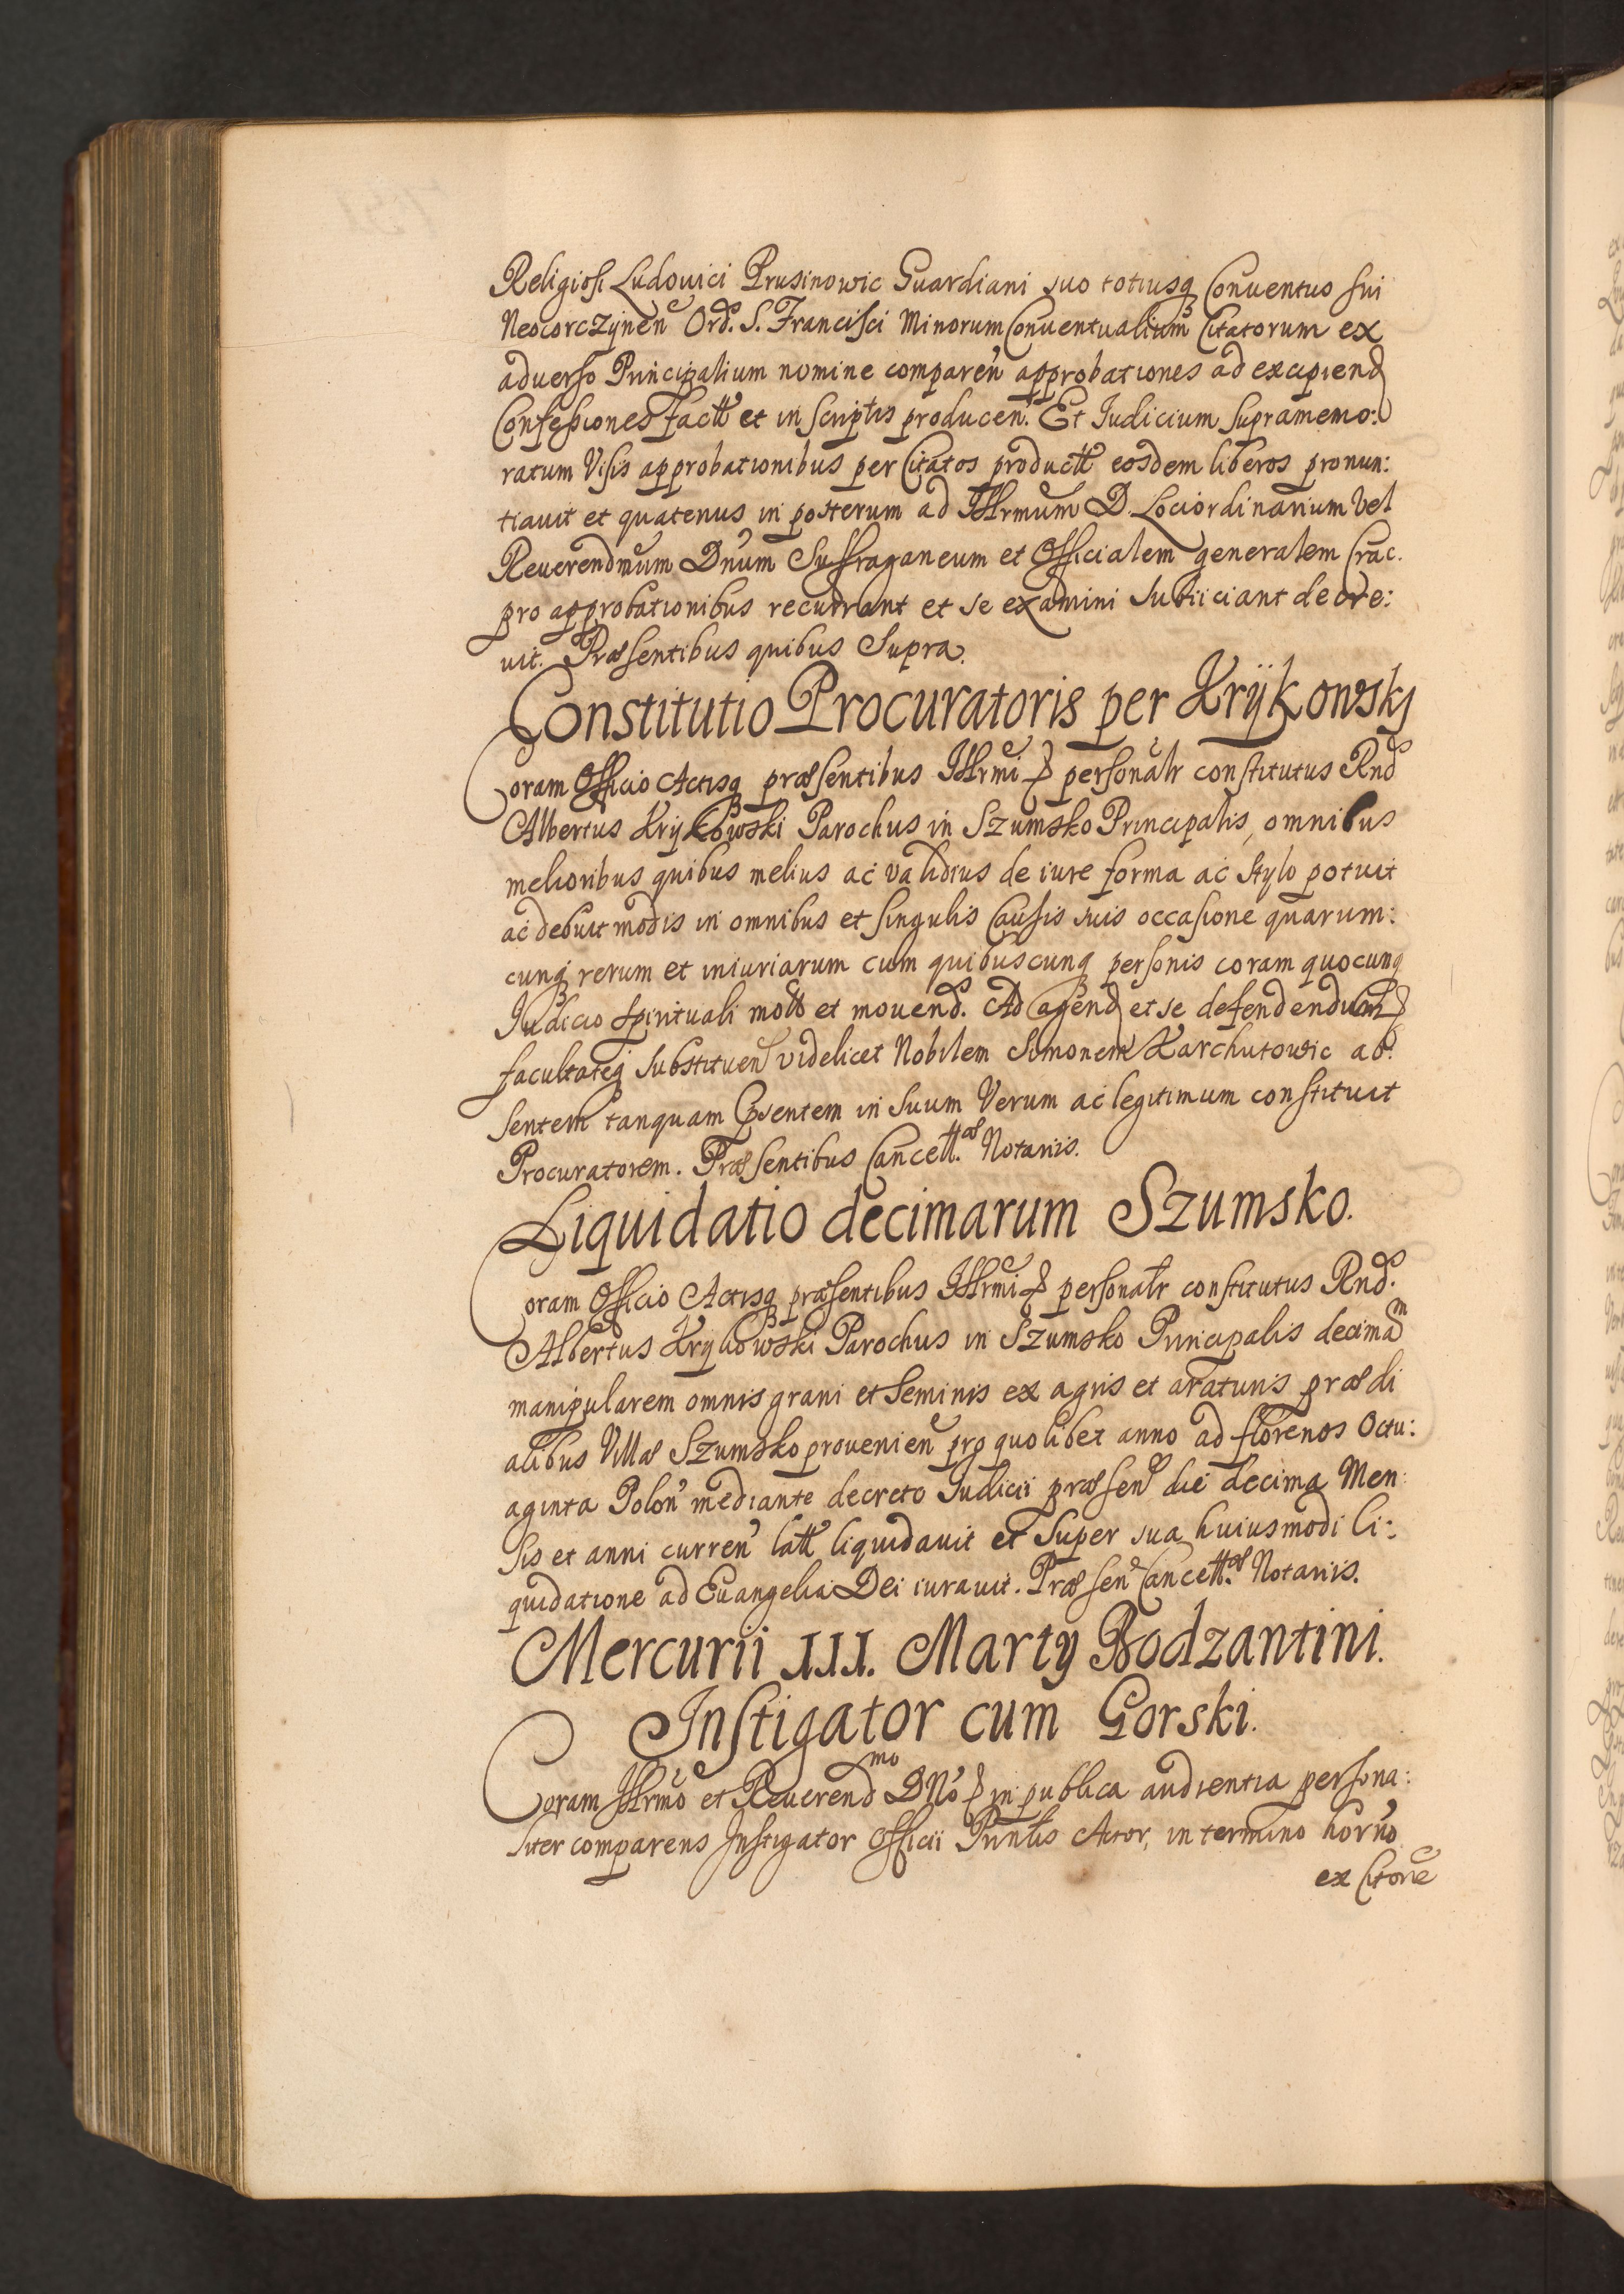 Religiosi Ludouici Prusinowic Guardiani suo totiusq Conuentus sui
Neocorczynen Ord. S. Francisci Minorum Conuentualium Citatorum ex
aduerso Principalium nomine comparen approbationes ad excipiend
Confessiones factt et in scriptis producen. Et Iudicium supramemo:
ratum Visis approbationibus per Citatos productt eosdem liberos pronun:
tiauit et quatenus in posterum ad Illrmum D. Lociordinarium Vel
Reuerendmum Dnum Suffraganeum et Officialem generalem Crac.
pro approbationibus recurrant et se examini subiiciant decre:
uit. Præsentibus quibus Supra.
Constitutio Procuratoris per Krÿkowskj
Coram Officio Actisq præsentibus Illrmi & personalr constitutus Rnd
Albertus Krykowski Parochus in Szumsko Principalis, omnibus
melioribus quibus melius ac validius de iure forma ac stylo potuit
ac debuit modis in omnibus et singulis Causis suis occasione quarum:
cunq rerum et iniuriarum cum quibuscunq personis coram quocunq
Iudicio spirituali mott et mouend. Ad agend et se defendendum &
facultateq substituen videlicet Nobilem Simonem Karchutowic ab:
sentem tanquam Psentem in suum Verum ac legitimum constituit
Procuratorem. Præsentibus Cancell.æ Notariis.
Liquidatio decimarum Szumsko.
Coram Officio Actisq præsentibus Illrmi & personalr constitutus Rnd.
Albertus Krykowski Parochus in Szumsko Principalis decimam
manipularem omnis grani et seminis ex agris et araturis prædi
alibus Villæ Szumsko prouenien pro quolibet anno ad florenos Octu:
aginta Polon mediante decreto Iudicii præsen die decima Men:
sis et anni curren latt liquidauit et super sua huiusmodi li:
quidatione ad Euangelia Dei iurauit. Præsen Cancell.æ Notariis.
Mercurii III. Marty Bodzantini.
Instigator cum Gorski.
Coram Illrmo et Reuerendmo DNo & in publica audientia persona:
liter comparens Instigator Officii Prinlis Actor, in termino horno
ex Citone